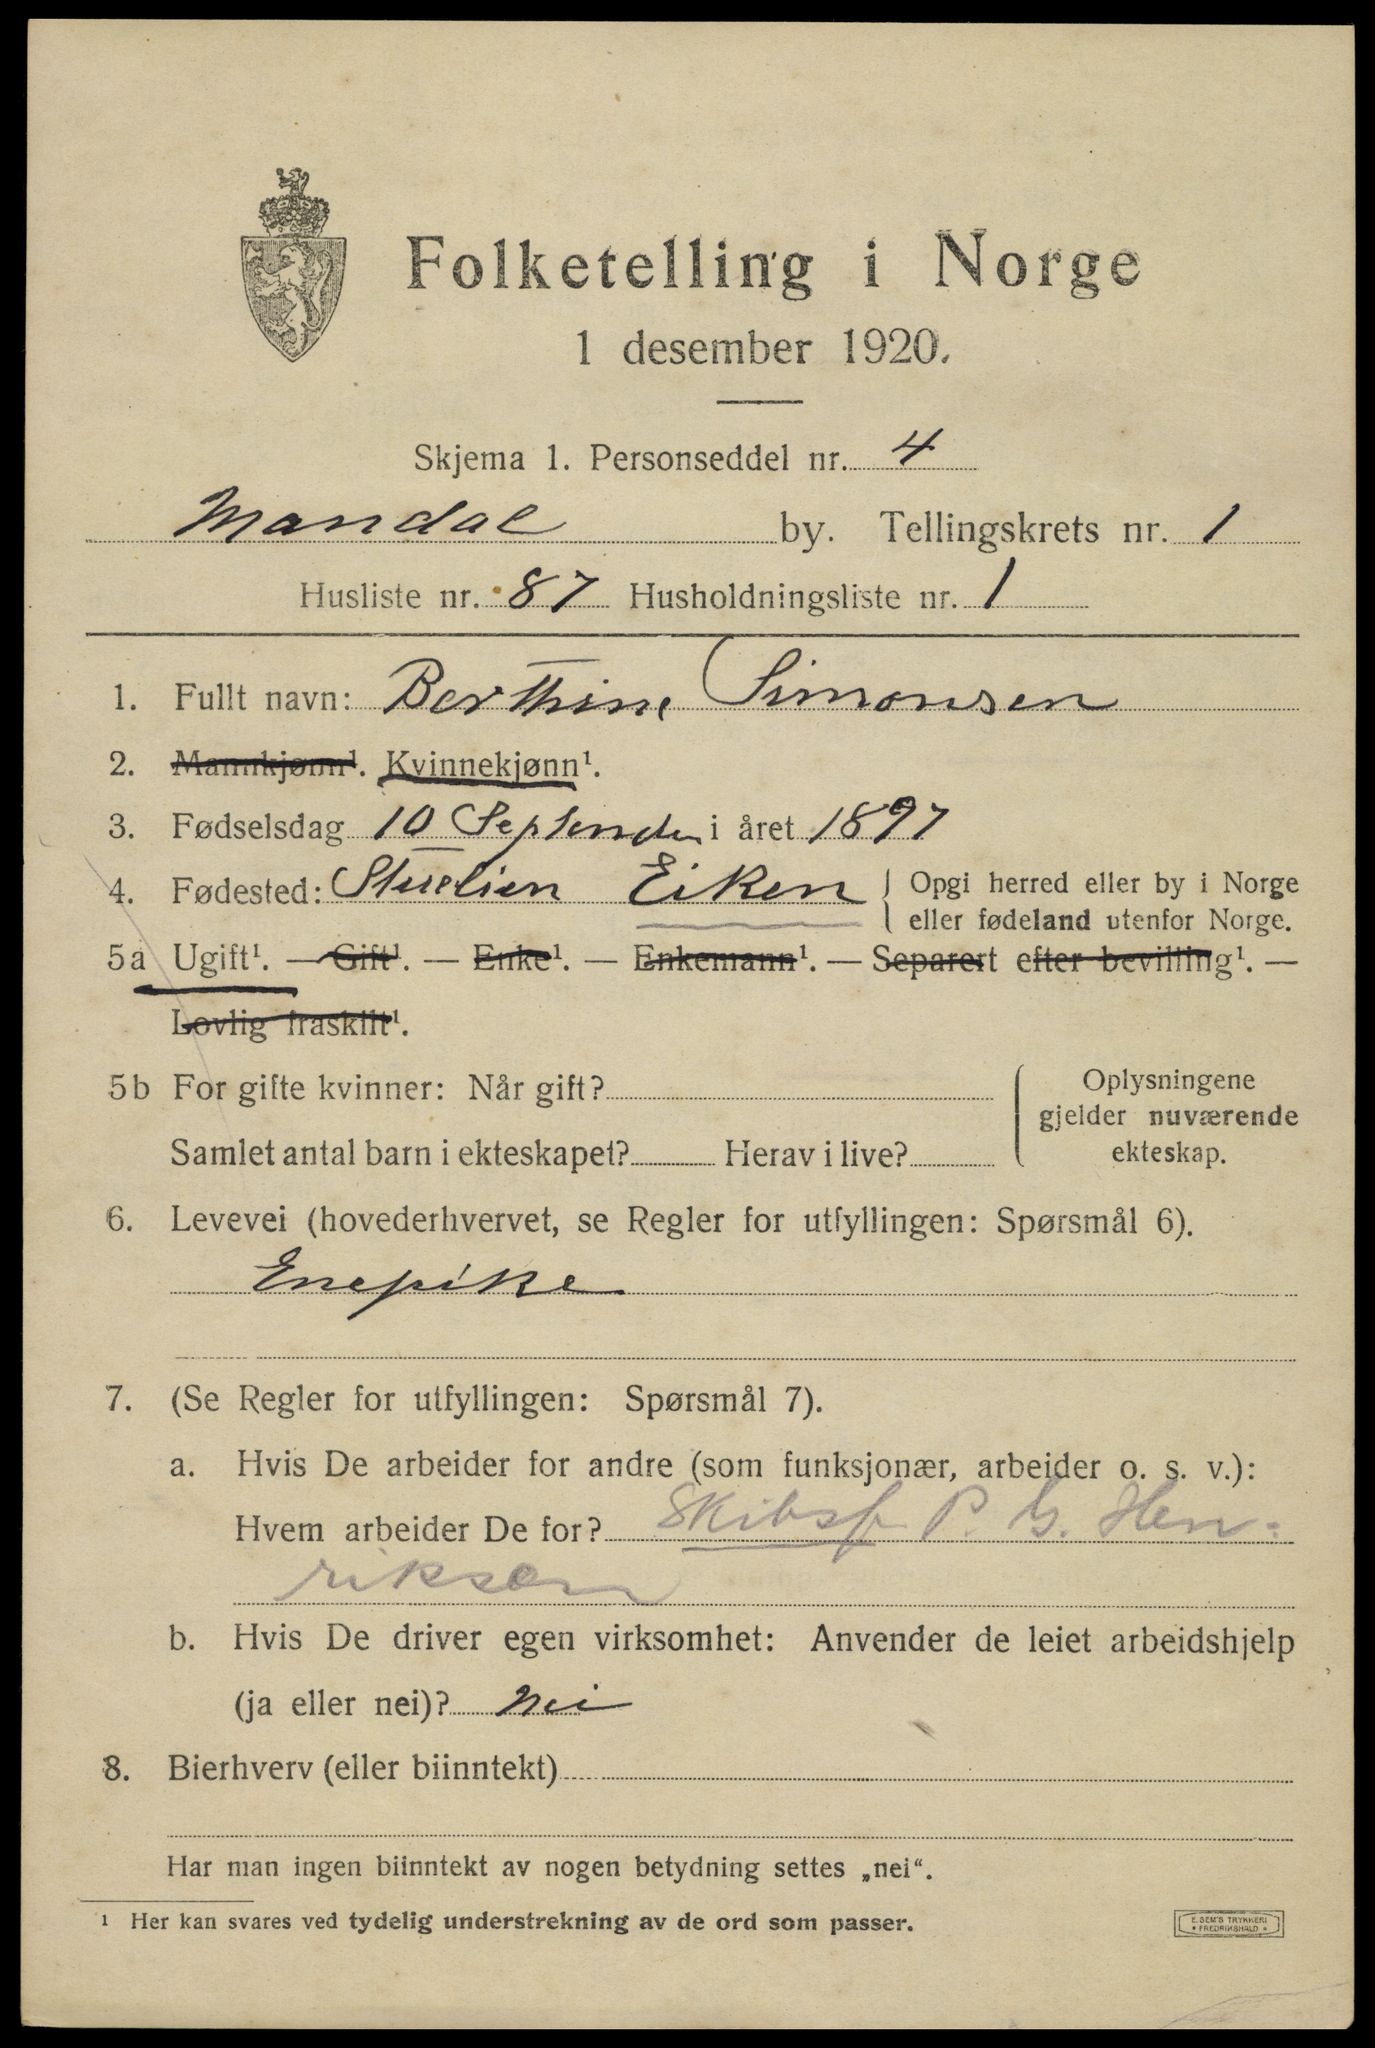 Folketelling i Norge
1 desember 1920.
Skjema 1. Personseddel nr. 4
Mandal by. Tellingskrets nr. 1
Husliste nr. 87 Husholdningsliste nr. 1
1. Fullt navn: Berthine Simonsen
2. Mannkjønn¹. Kvinnekjønn¹.
3. Fødselsdag 10 September i året 1897
4. Fødested: Eiken { Opgi herred eller by i Norge
eller fødeland utenfor Norge.
5a Ugift¹. — Gift¹. — Enke¹. — Enkemann¹. — Separert efter bevilling¹. —
Lovlig fraskilt¹.
5b For gifte kvinner: Når gift?
Samlet antal barn i ekteskapet? Herav i live?
Oplysningene
gjelder nuværende
ekteskap.
6. Levevei (hovederhvervet, se Regler for utfyllingen: Spørsmål 6).
Enepike
7. (Se Regler for utfyllingen: Spørsmål 7).
a. Hvis De arbeider for andre (som funksjonær, arbeider o. s. v.):
Hvem arbeider De for? Skibsf P. G. Hen-
riksen
b. Hvis De driver egen virksomhet: Anvender de leiet arbeidshjelp
(ja eller nei)? Nei
8. Bierhverv (eller biinntekt)
Har man ingen biinntekt av nogen betydning settes „nei“.
¹ Her kan svares ved tydelig understrekning av de ord som passer.
E. SEM'S TRYKKERI
• FREDRIKSHALD •